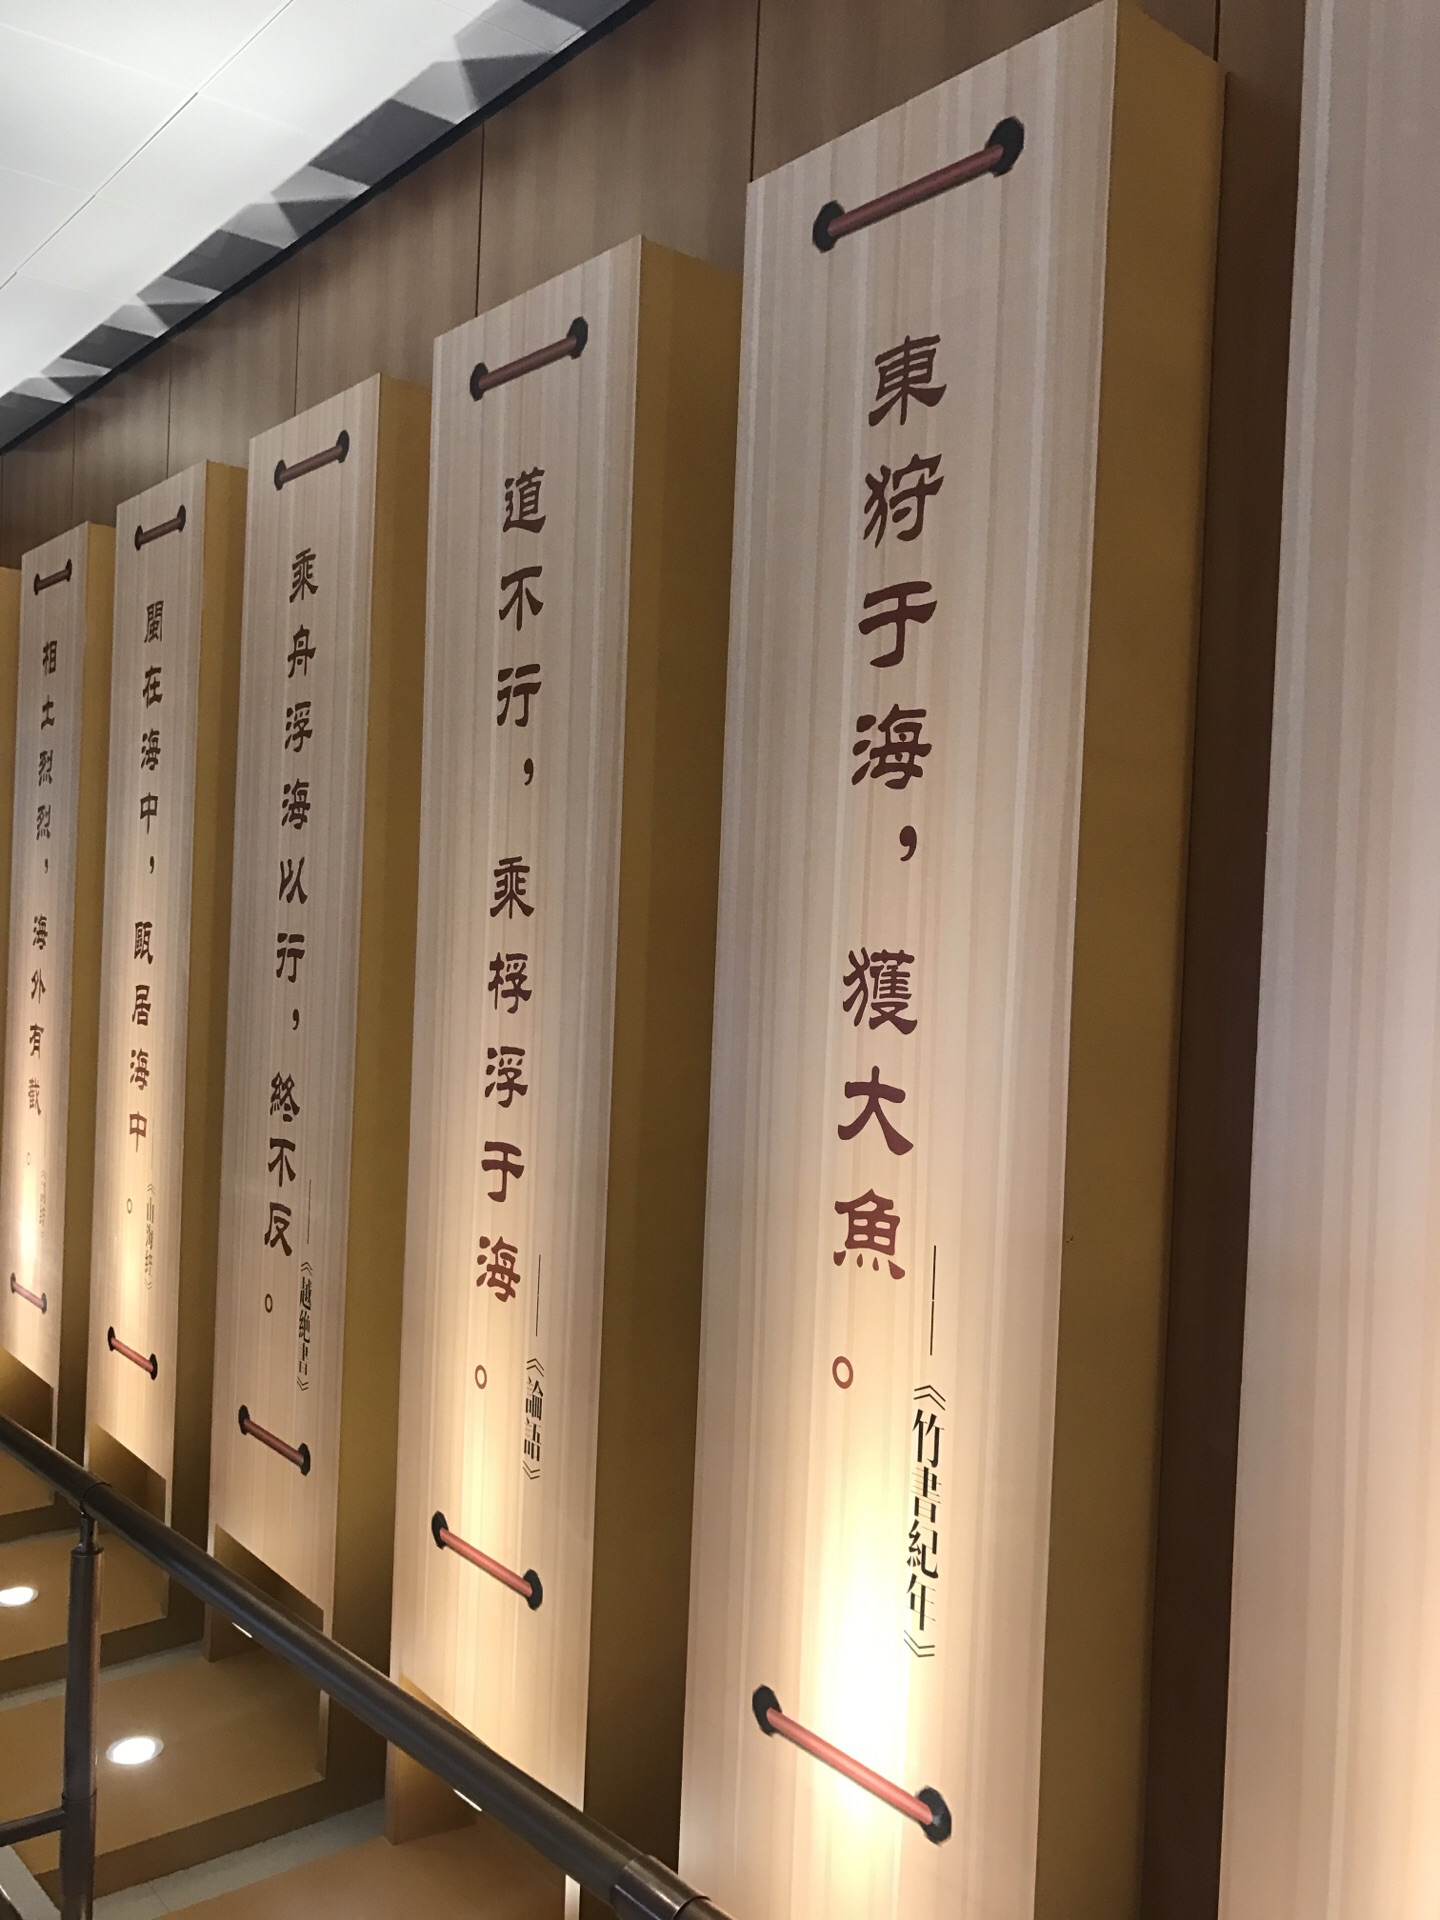 東狩于海，獲大魚。
——《竹書紀年》
道不行，乘桴浮于海。
——《論語》
乘舟浮海以行，終不反。
——《越絶書》
閩在海中，甌居海中。
——《山海経》
相土烈烈，海外有截。